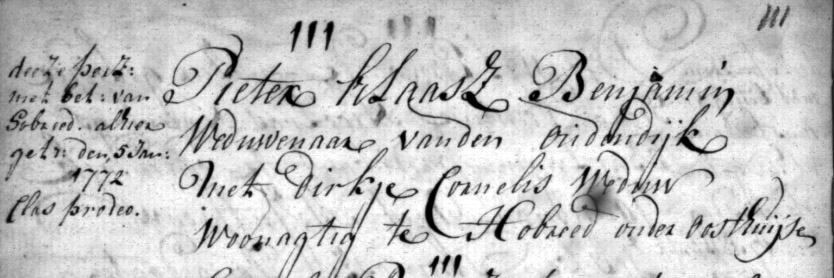 111
111
deeze perz:
met bet: van
Hobreed. alhier
getr: den, 5 Jan:
1772
Clas prodeo.
Pieter Klaasz Benjamin
Weduwenaar vanden oudendijk
met Dirkje Cornelis Weduw
Woonagtig te Hobreed onder oosthuijse
111